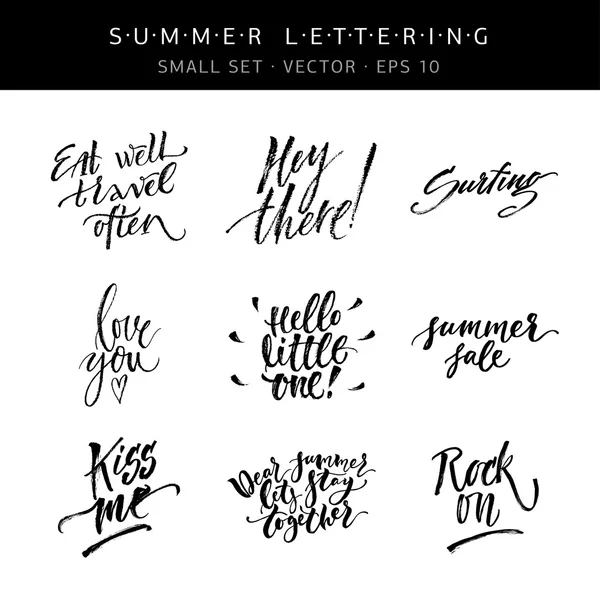 S·U·M·M·E·R L·E·T·T·E·R·I·N·G
SMALL SET · VECTOR · EPS 10
Eat well
travel
often
Hey
there!
Surfing
love
you
Hello
little
one!
summer
sale
Kiss
me
Dear summer
lets stay
together
Rock
on